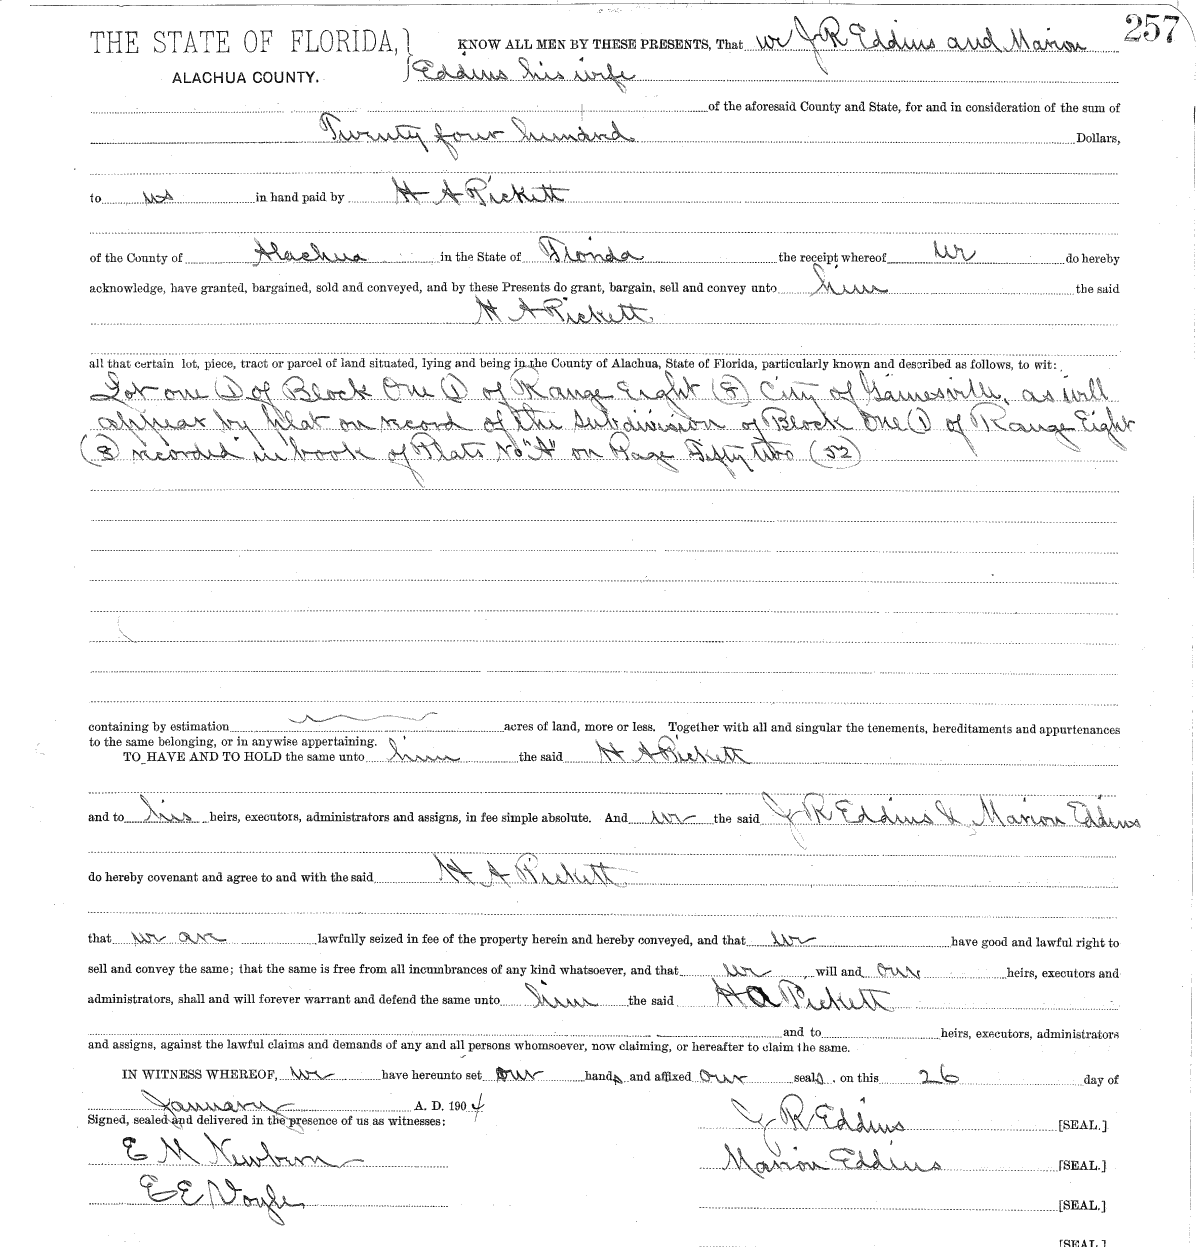 257
THE STATE OF FLORIDA, KNOW ALL MEN BY THESE PRESENTS, That we J R Eddins and Marion
ALACHUA COUNTY. Eddins his wife
of the aforesaid County and State, for and in consideration of the sum of
Twenty four hundred Dollars,
to us in hand paid by H A Pickett
of the County of Alachua in the State of Florida the receipt whereof we do hereby
acknowledge, have granted, bargained, sold and conveyed, and by these Presents do grant, bargain, sell and convey unto him the said
H A Pickett
all that certain lot, piece, tract or parcel of land situated, lying and being in the County of Alachua, State of Florida, particularly known and described as follows, to wit:
Lot one (1) of Block One (1) of Range Eight (8) City of Gainesville, as will
appear by plat on record of the subdivision of Block One (1) of Range Eight
(8) recorded in book of Plats No "A" on Page Fifty two (52)
containing by estimation acres of land, more or less. Together with all and singular the tenements, hereditaments and appurtenances
to the same belonging, or in anywise appertaining.
TO HAVE AND TO HOLD the same unto him the said H A Pickett
and to his heirs, executors, administrators and assigns, in fee simple absolute. And we the said J R Eddins & Marion Eddins
do hereby covenant and agree to and with the said H A Pickett
that we are lawfully seized in fee of the property herein and hereby conveyed, and that we have good and lawful right to
sell and convey the same; that the same is free from all incumbrances of any kind whatsoever, and that we will and our heirs, executors and
administrators, shall and will forever warrant and defend the same unto him the said H A Pickett
and to heirs, executors, administrators
and assigns, against the lawful claims and demands of any and all persons whomsoever, now claiming, or hereafter to claim the same.
IN WITNESS WHEREOF, we have hereunto set our hands and affixed our seals on this 26 day of
January A. D. 1904
Signed, sealed and delivered in the presence of us as witnesses:
J R Eddins [SEAL.]
E M Newburn
Marion Eddins [SEAL.]
E E Voyle
[SEAL.]
[SEAL.]